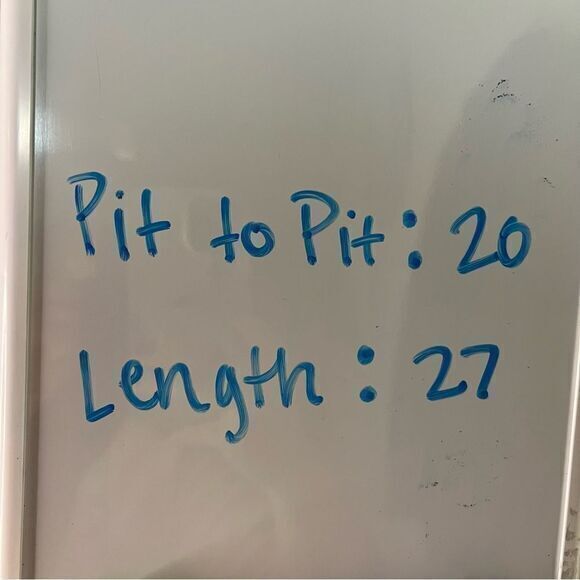 Pit to Pit: 20
Length: 27